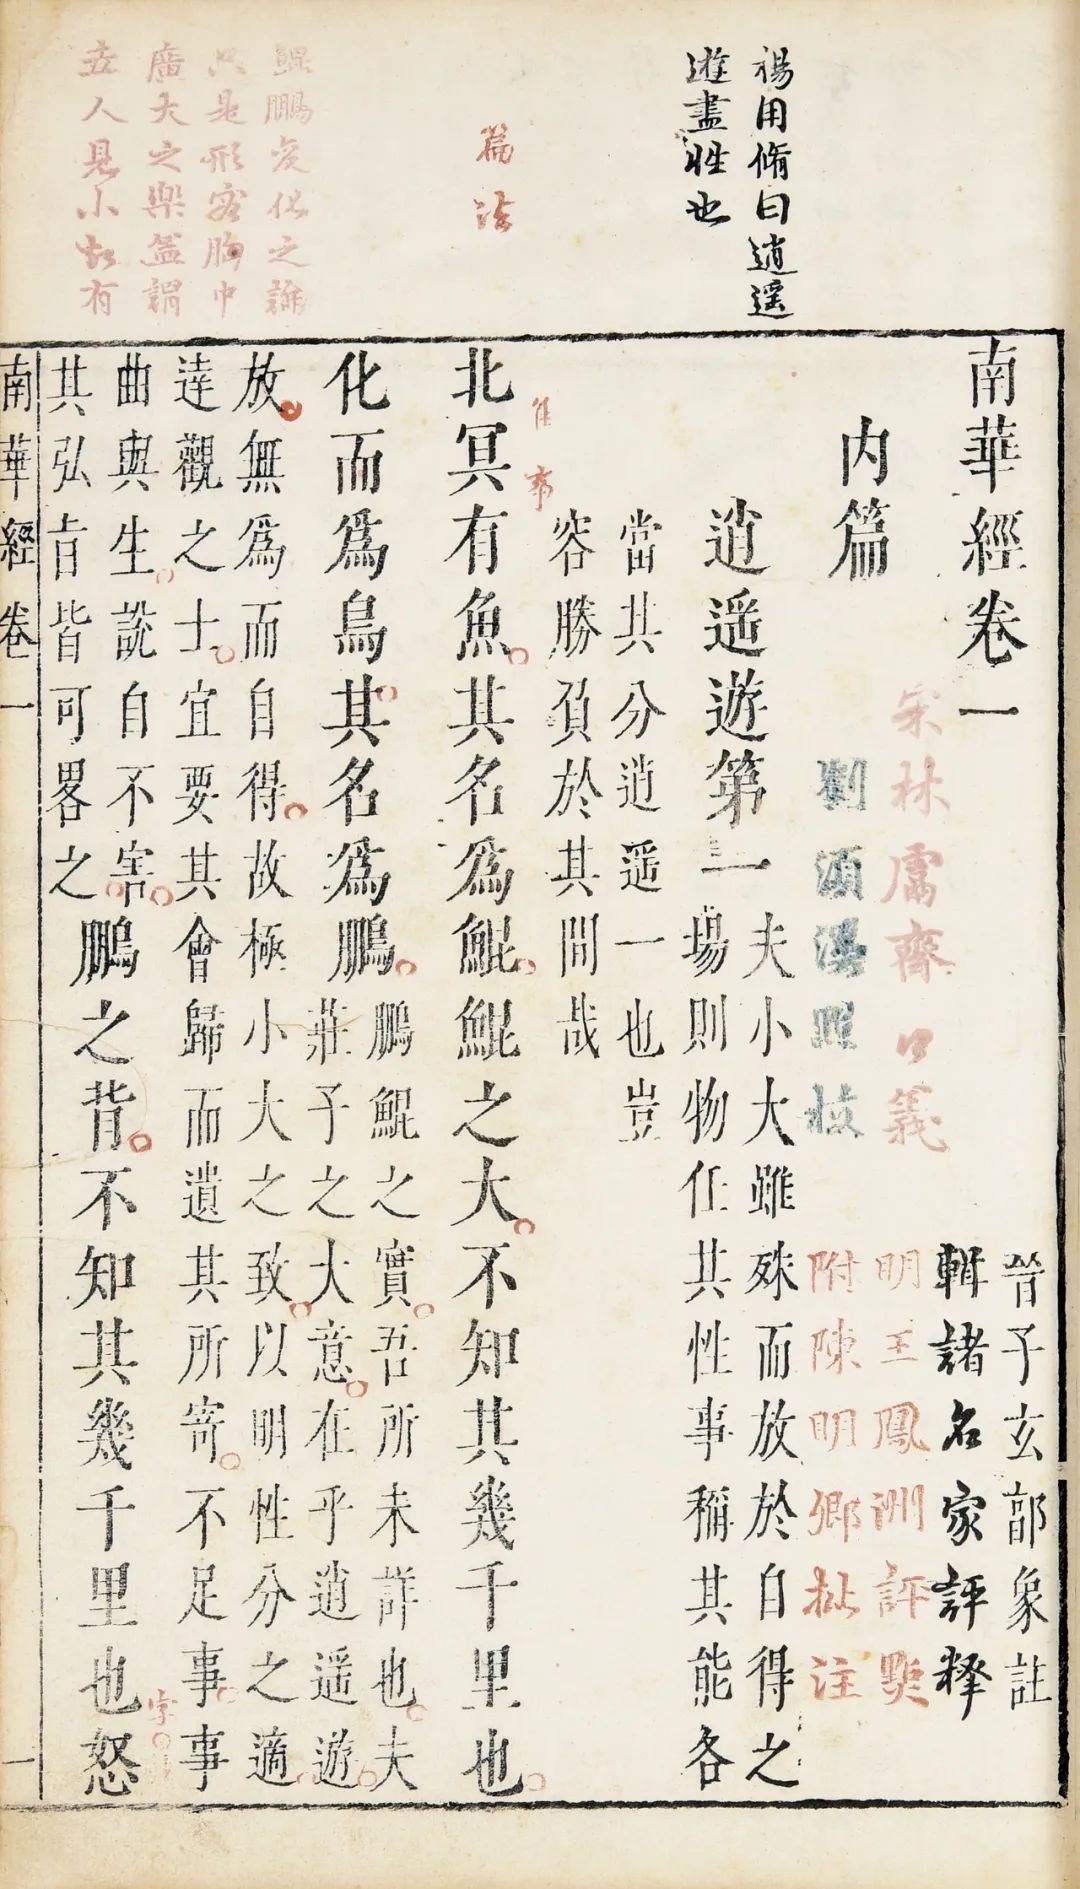 楊用脩曰逍遥
遊盡性也
篇法
鯤鵬變化之論
只是形容胸中
廣大之樂盖謂
世人見小故有
南華經卷一
晉子玄郭象註
輯諸名家評釋
宋林鬳齋口義
明王鳳洲評點
内篇
劉須溪點校
附陳明卿批注
逍遥遊第一
夫小大雖殊而放於自得之
場則物任其性事稱其能各
當其分逍遥一也豈
容勝負於其間哉
北冥有魚其名爲鯤鯤之大不知其幾千里也
化而爲鳥其名爲鵬
鵬鯤之實吾所未詳也夫
莊子之大意在乎逍遥遊
放無爲而自得故極小大之致以明性分之適
達觀之士宜要其會歸而遺其所寄不足事事
曲與生說自不害
其弘旨皆可畧之
鵬之背不知其幾千里也怒
字
南華經卷一
一